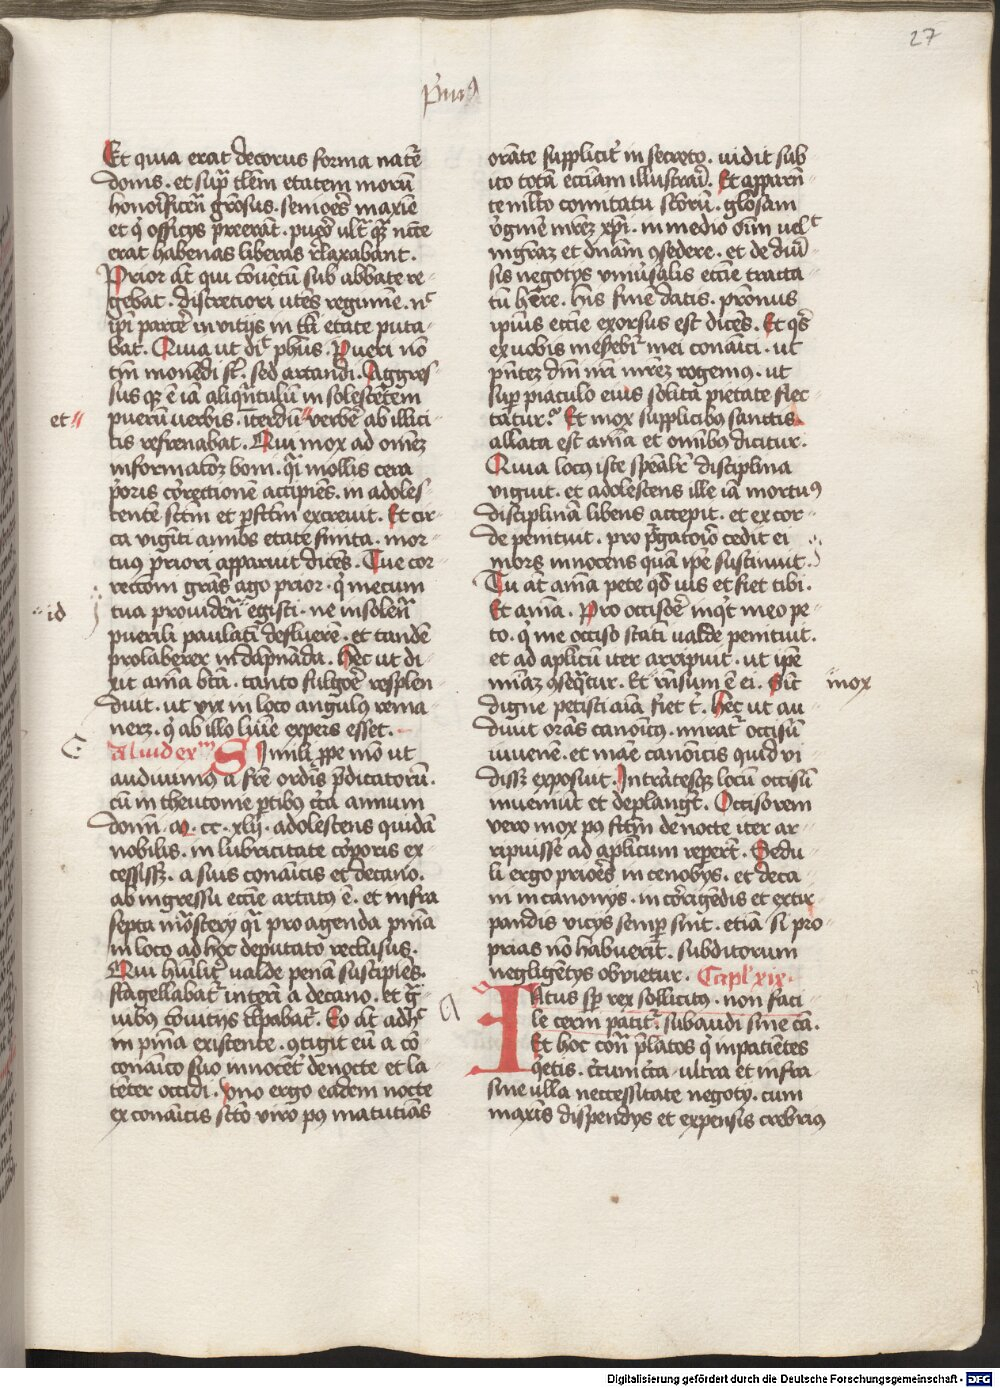 27
Prim9
Et quia erat decorus forma nate
donis . et sup tlem etatem morū
honorificen grosus . seniores maxie
et q officijs preerāt . puero ult qr ncce
erat habenas liberas relaxabant .
Prior at qui cōuentū sub abbate re-
gebat . discretiori utens regimine . nc
ipi parcere in vitijs in tli etate puta-
bat . Quia ut dic phus . Pueri nō
tm monēdi st . sed artandi . Aggres-
sus qz e iā aliqntulū insolescētem
et puerū uerbis . iterdū verbe ab illici-
tis refrenabat . Qui mox ad omēz
informatōz boni . qi mollis cera
pioris correctionē accipiēs . in adoles-
centē sctm et pfctm excreuit . Et cir-
ca viginti annos etate finita . mor-
tuus priori apparuit dicēs . Tue cor-
rectoni gras ago prior . q mecum
id tua prouidencia egisti . ne insolenti
puerili paulatī defluerē . et tandē
prolaberer in dāpnāda . Hec ut di-
xit aīa btā . tanto fulgore resplen-
duit . ut vix in loco angulus rema-
nerz . q ab illo lumīe expers esset .
Aliud exm Simili ppe mō ut
audiuimus a fre ordis pdicatorū .
cū in theutonie ptibus circa annum
domi . m . cc . xlij . adolescens quidā
nobilis . in lubricitate corporis ex-
cessissz . a suis conaīcis et decano .
ab ingressu ecctie artatus e . et infra
septa mōsterij qi pro agenda pnīa
in loco ad hoc deputato reclusus .
Qui huilit ualde penā suscipies .
flagellabat interī a decano . et gra-
uibus cōuitijs increpabat . Eo at adhc
in pnīa existente . 9tigit eū a cō-
conaīco suo innocent denocte et la-
tent occidi . Vno ergo eadem nocte
ex conaīcis scto viro post matutinas
orāte supplicit in secreto . uidit sub-
ito totā eccliam illustrari . Et apparu-
te mlto comitatu sctorū . glosam
vgīnē mrēz xpi . in medio oīm uelt
ingraz et dnām 9sedere . et de diu-
sis negotijs vniusalis ecclie tracta-
tū here . huis finē datis . pronus
ipius ecclie exorsus est dicēs . Et qs
ex uobis mesebit mei conaīci . ut
pntez dni nri mrez rogemus . ut
sup piaculo eius solita pietate flec-
tatur . Et mox supplicibus sanctis
allata est aīa et omibus dicitur .
Quia locus iste speālr disciplina
viguit . et adolescens ille iā mortuus
disciplinā libens accepit . et ex cor-
de penituit . pro pgatorio cedit ei
mors innocens quā ipe sustinuit .
Tu at aīa pete qd uis et fiet tibi .
Et aīa . Pro occisore inqt meo pe-
to . q me occiso stati ualde penituit .
et ad aplicū iter arripuit . ut ipe
miaz 9seqtur . Et rnsum e ei . Sict mox
digne petisti aīa fiet t . Hec ut au-
diuit orās canonicus . mirat occisū
iuuenē . et mane canonicis quid vi-
dissz exposuit . Intrātesqz locū occisū
inueniut et deplangt . Occisorem
vero mox post fctm denocte iter ar-
ripuisse ad aplicum repert . Sedu-
li ergo priores in cenobijs . et deca-
ni in canonijs . in corrigēdis et extir-
pandis vicijs semp sint . etiā si pro-
prias nō habuerit . subditorum
negligētijs obuietur . Capl xix .
a Itus sp rex sollicitus . non faci-
le cerni patit . subaudi sine cā .
Et hoc contra platos q inpatientes
qetis . circumcirca . ultra et infra .
sine ulla neccessitate negotij . cum
maxis dispendijs et expensis crebrius
Digitalisierung gefördert durch die Deutsche Forschungsgemeinschaft - DFG